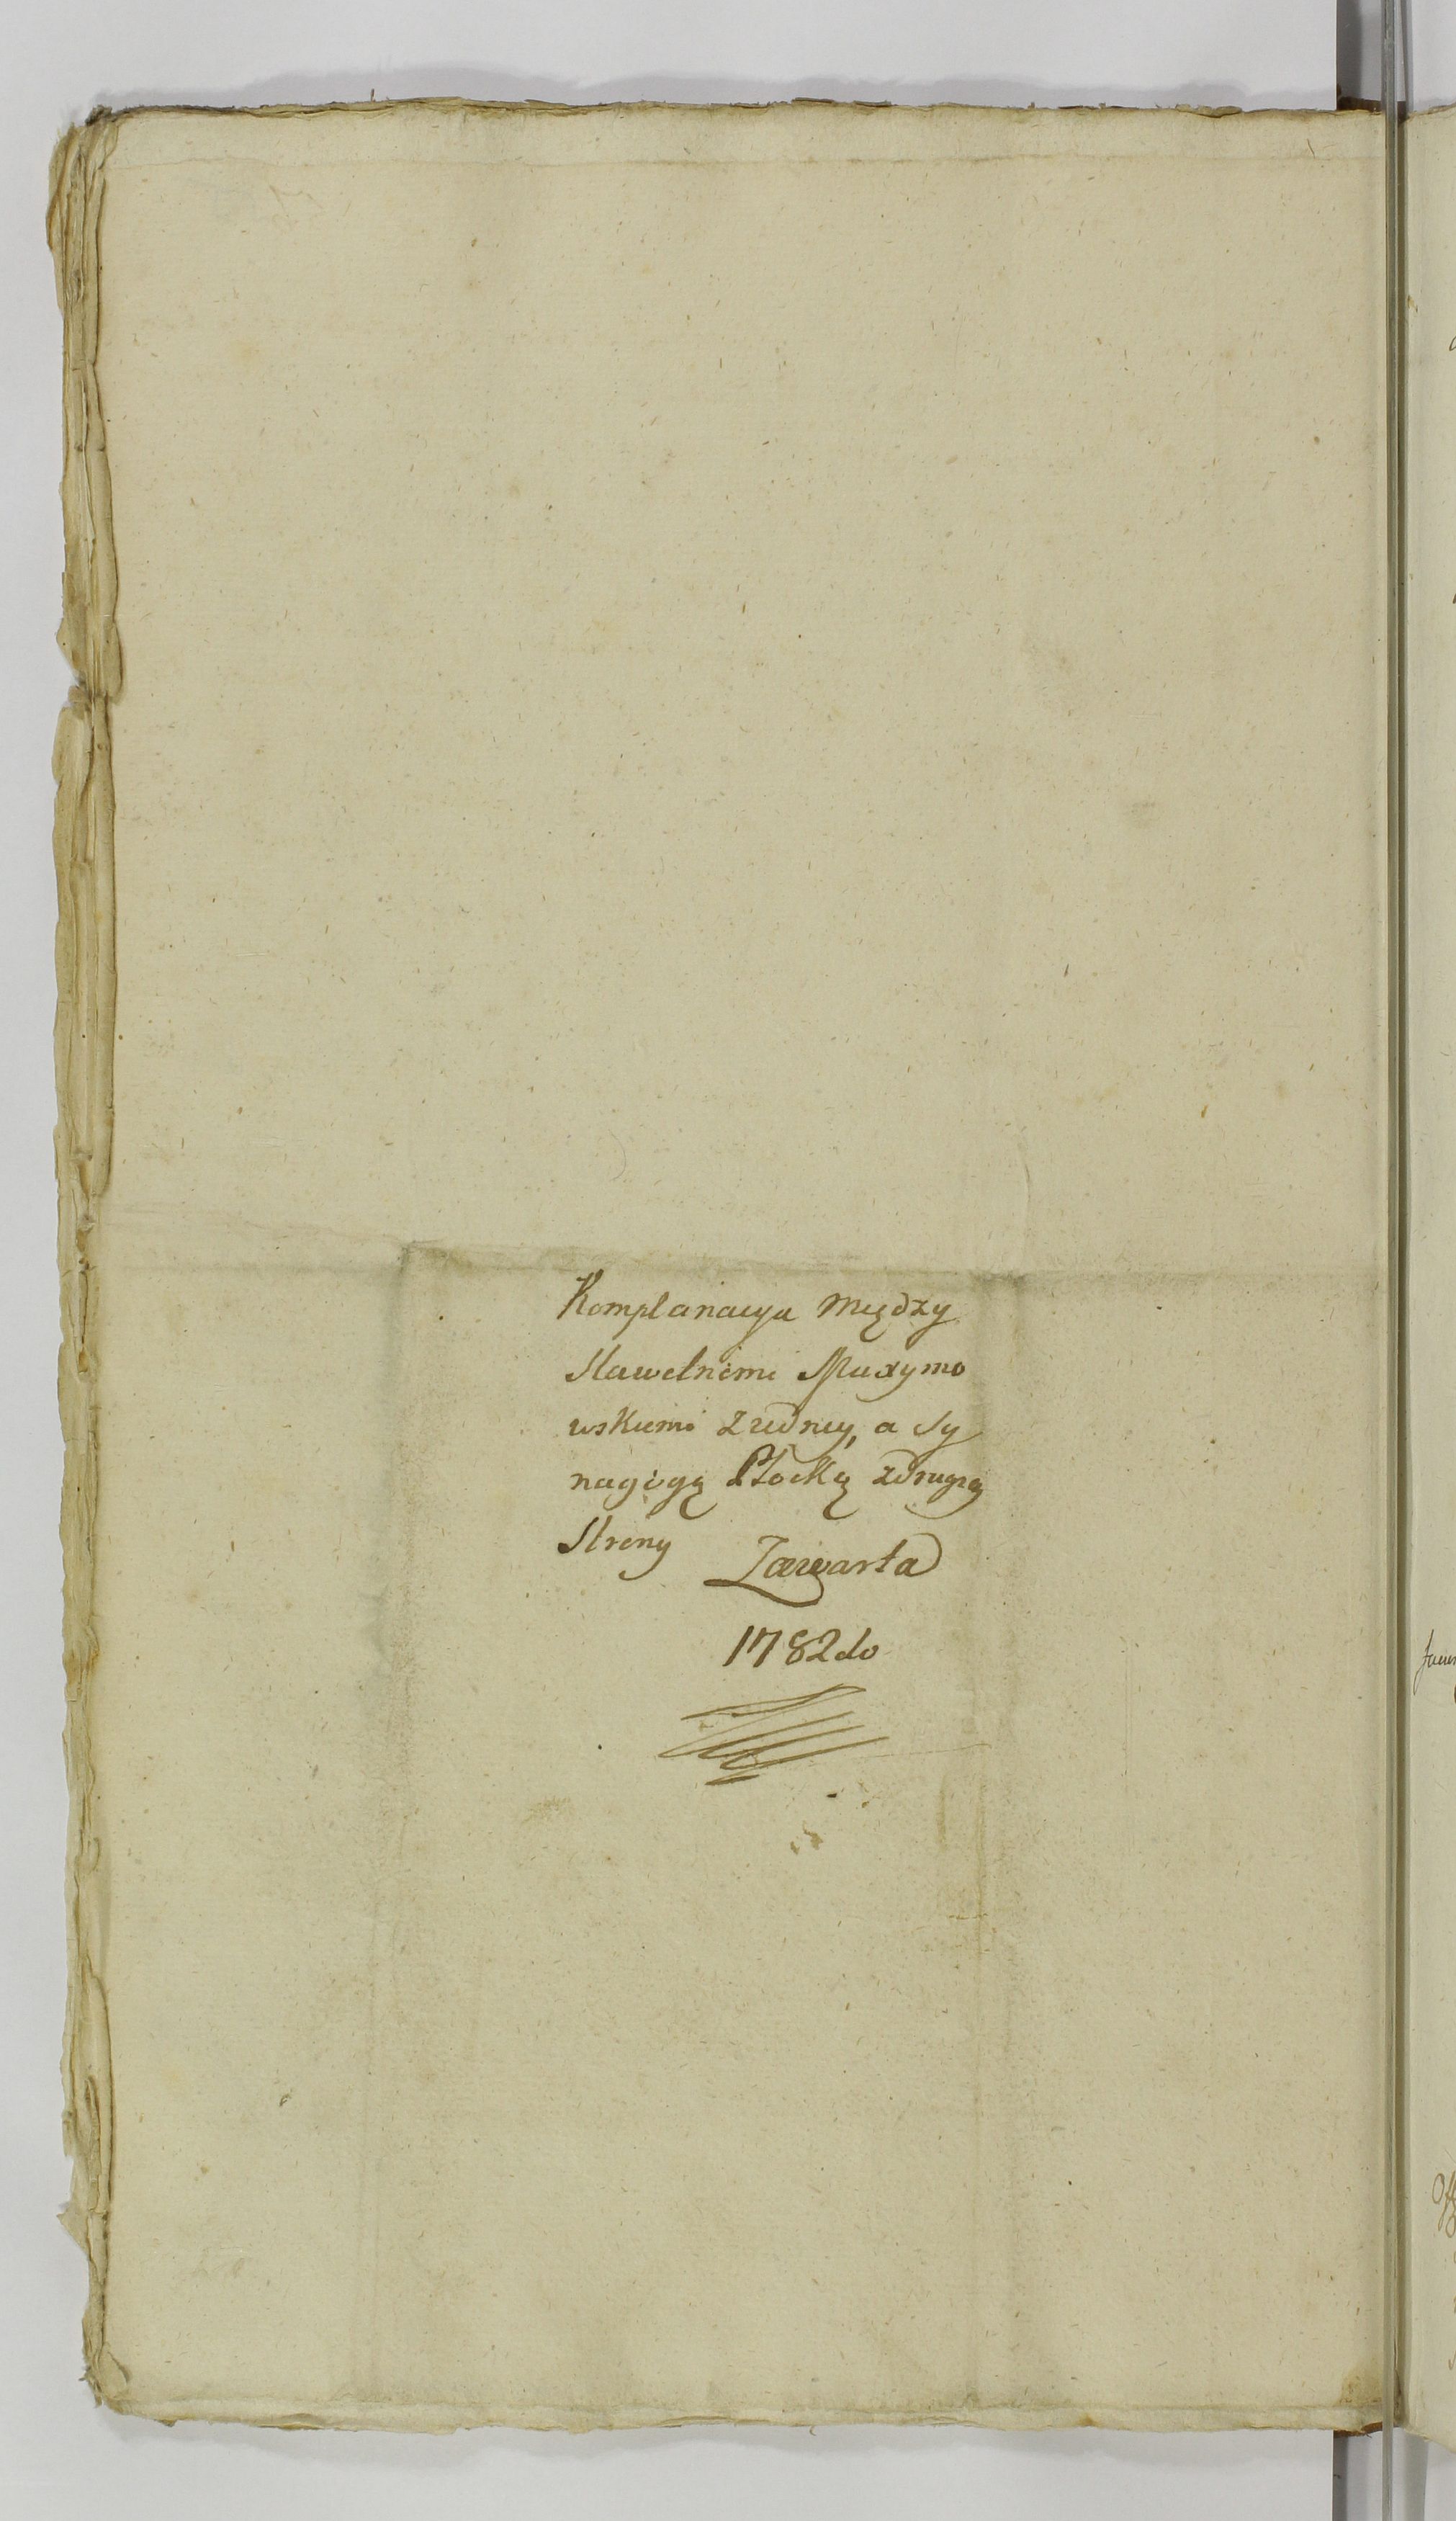 Komplanacya między
Sławetnemi Maxymo
wskiemi z iedney, a Sy
nagogą Płocką z drugiey
Strony
Zawarta
1782do